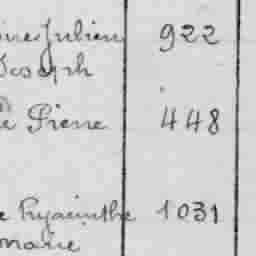 Julien 922
Joseph
Pierre 448
Hyacinthe 1031
marie